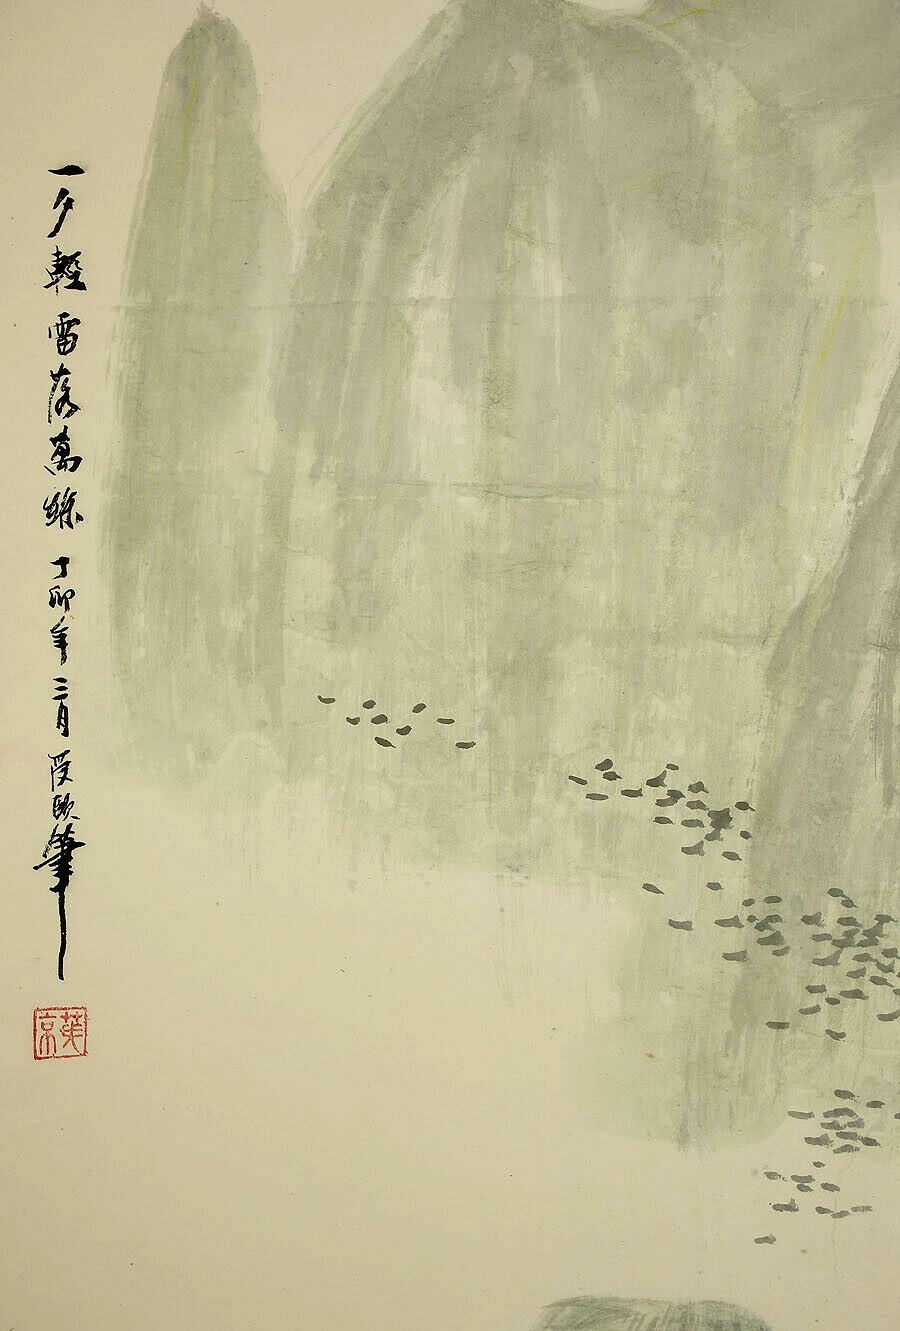 一夕輕雷落萬絲 丁卯年三月
筆